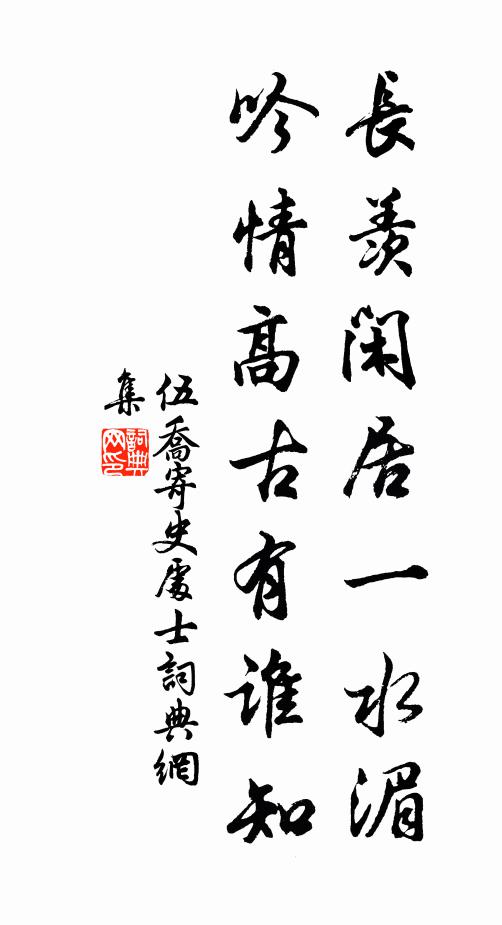 長羨閑居一水湄
吟情高古有誰知
伍喬寄史處士詞典網
集
詞典
网印